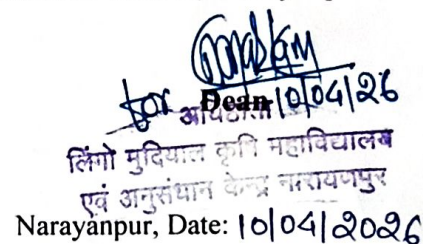 for Dean 10/04/26
अधिष्ठाता
लिंगो मुदियाल कृषि महाविद्यालय
एवं अनुसंधान केन्द्र नारायणपुर
Narayanpur, Date: 10/04/2026